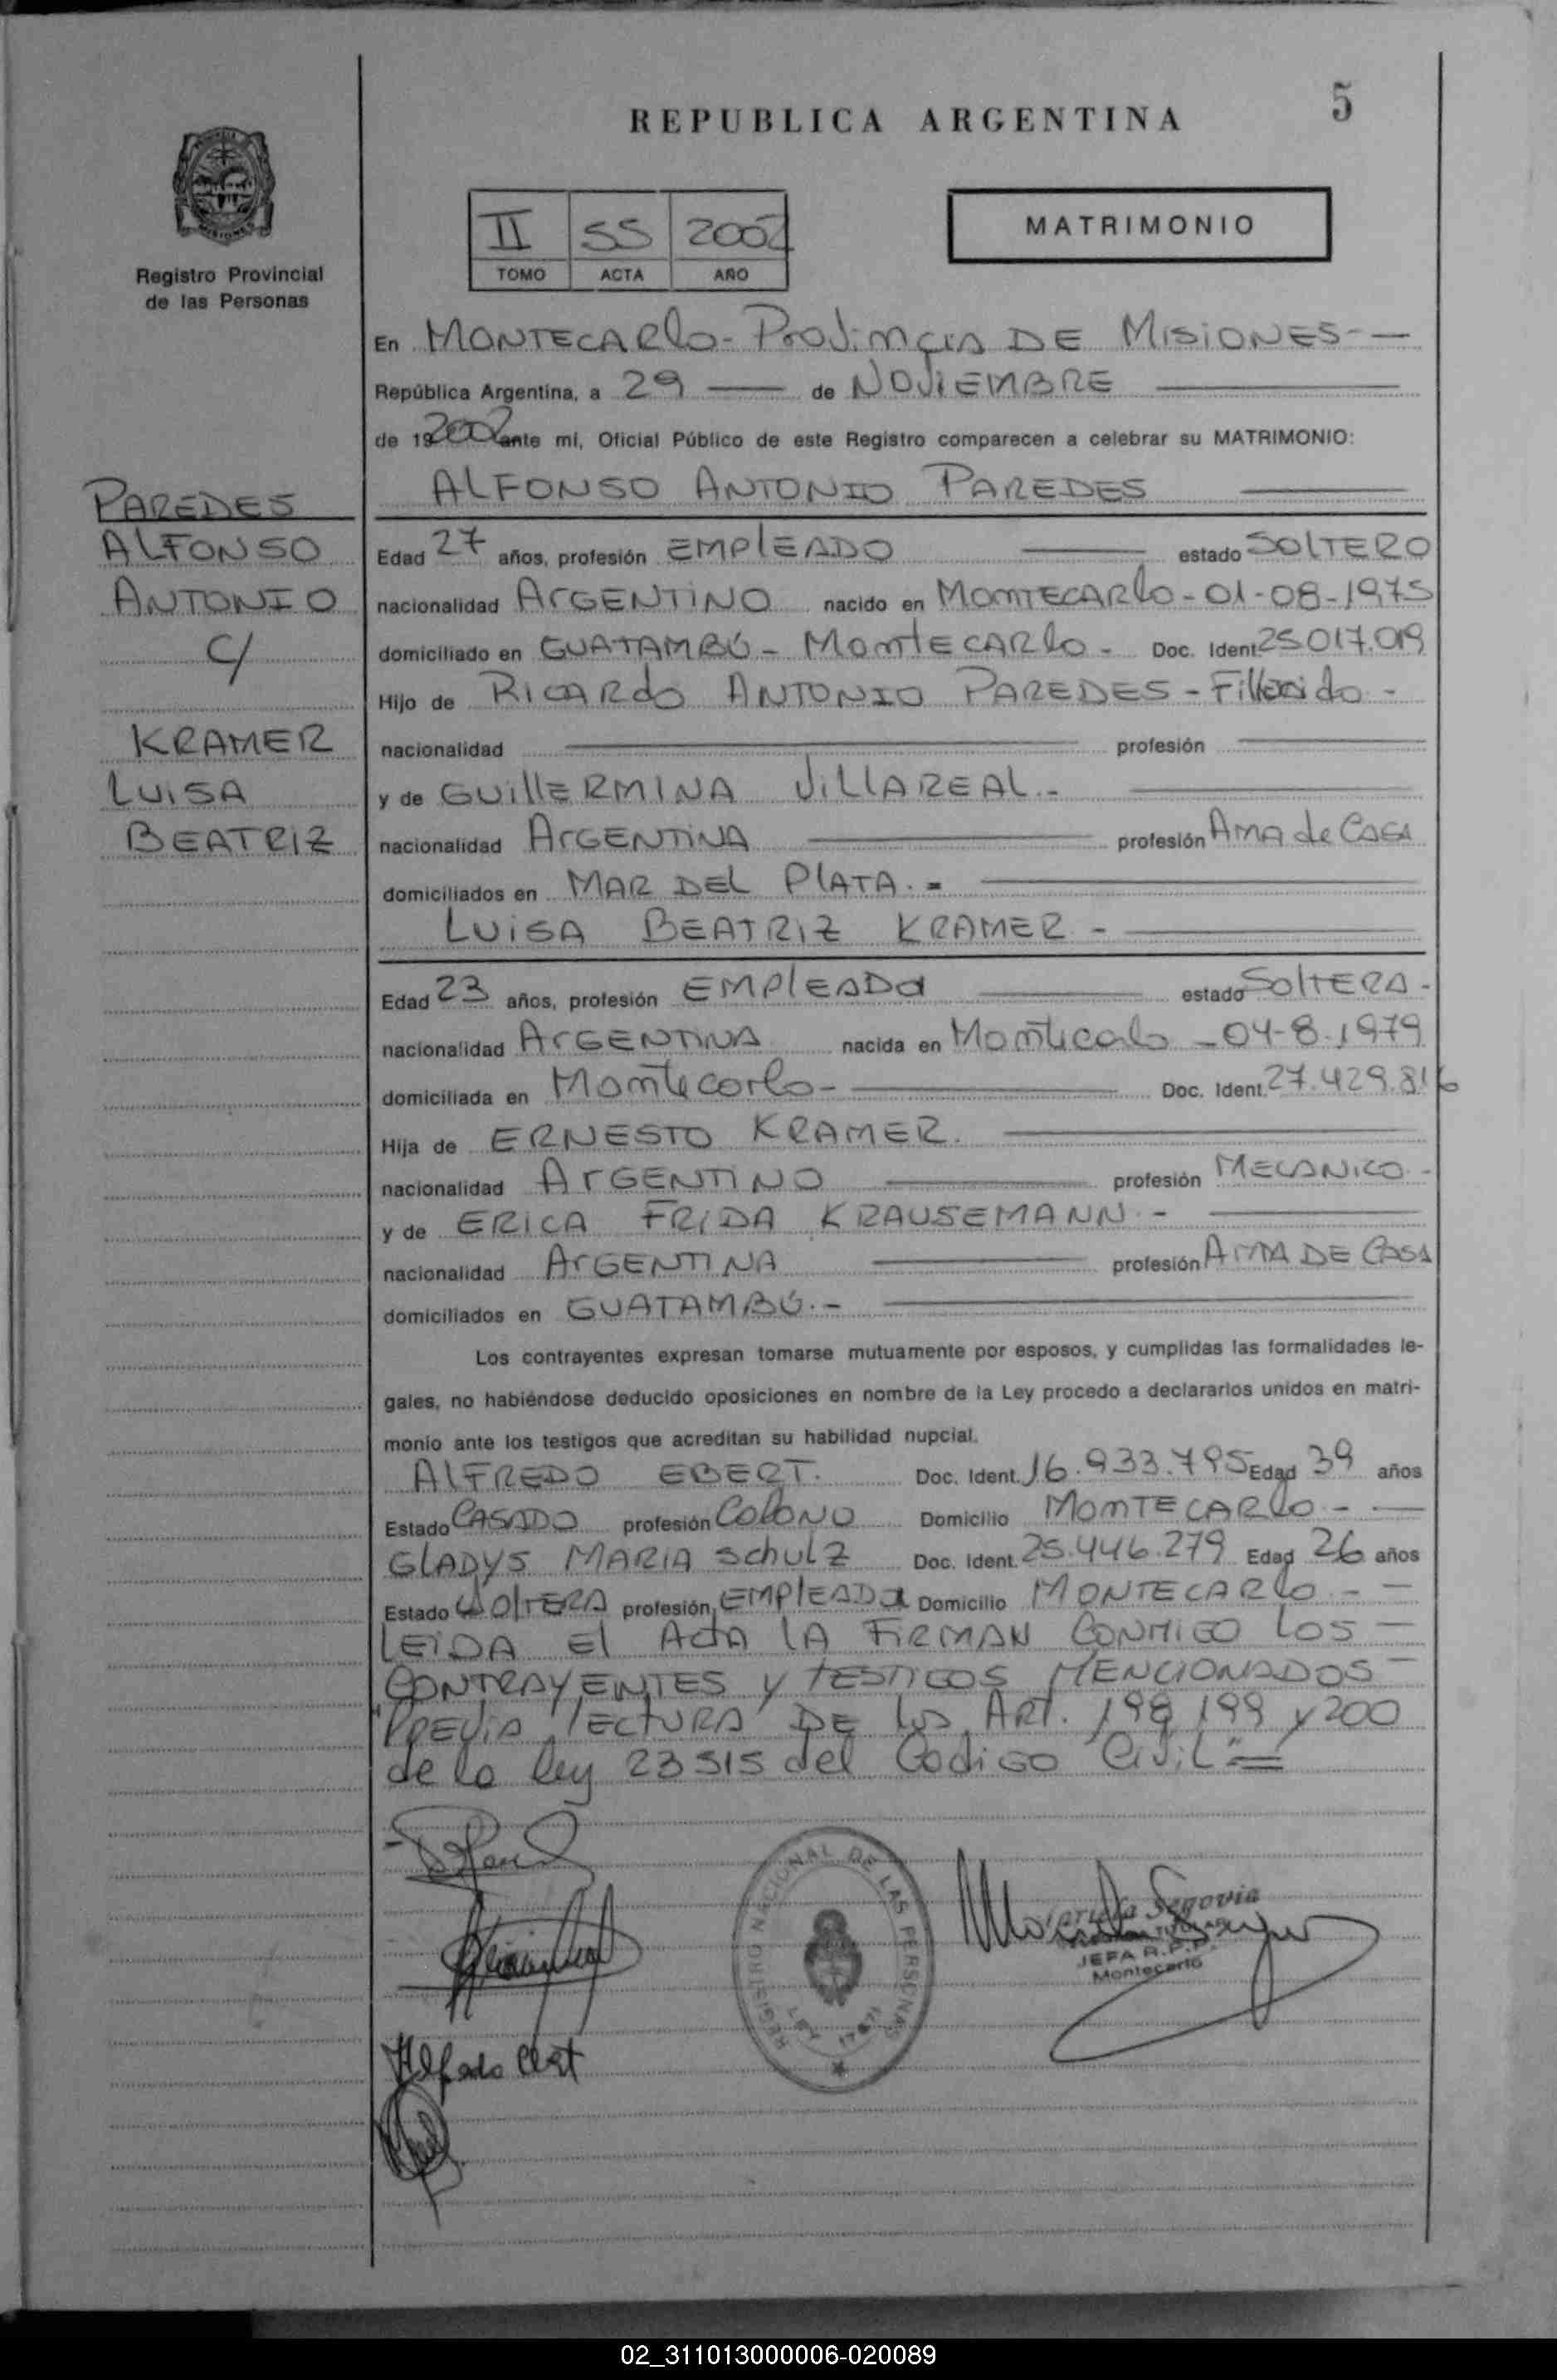 5
REPUBLICA ARGENTINA
II SS 2002
TOMO ACTA AÑO
MATRIMONIO
Registro Provincial
de las Personas
En MONTECARlo - ProvinciA DE MisiONES - —
República Argentina, a 29 — de NOViEMBRE
de 19 2002 ante mi, Oficial Público de este Registro comparecen a celebrar su MATRIMONIO:
ALFONSO ANTONIO PAREDES
PAREDES
ALFONSO
ANTONIO
C/
KRAMER
LUiSA
BEATRIZ
Edad 27 años, profesión EMPlEADO estado SOlTERO
nacionalidad ARGENTiNO nacido en MONTECARlo - 01-08-1975
domiciliado en GUATAMBÚ - MONTECARlo - Doc. Ident 25017.019
Hijo de RiCARdo ANTONIO PAREDES -
nacionalidad — profesión —
y de GUillERMINA ViLLAREAL.-
nacionalidad ARGENTiNA profesión AMA de CASA
domiciliados en MAR DEL PlATA.-
LUiSA BEATRiZ KRAMER -
Edad 23 años, profesión EMPlEADa estado SOlTERA -
nacionalidad ARGENTINA nacida en Montecarlo - 04-8-1979
domiciliada en Montecarlo - Doc. Ident. 27.429.816
Hija de ERNESTO KRAMER.
nacionalidad ARGENTINO profesión MECANICO -
y de ERiCA FRIDA KRAUSEMANN -
nacionalidad ARGENTINA profesión AMA DE CASA
domiciliados en GUATAMBÚ.-
Los contrayentes expresan tomarse mutuamente por esposos, y cumplidas las formalidades le-
gales, no habiéndose deducido oposiciones en nombre de la Ley procedo a declararlos unidos en matri-
monio ante los testigos que acreditan su habilidad nupcial.
AlFREDO EBERT. Doc. Ident. 16.933.795 Edad 39 años
Estado CASADO profesión COlONO Domicilio MONTECARlo - —
GLADYS MARIA SchulZ Doc. Ident. 25.446.279 Edad 26 años
Estado SOlTERA profesión EMPlEADa Domicilio MONTECARlo - —
LEiDA El ActA lA FiRMAN CONMiGO LOS —
CONTRAYENTES y TESTIGOS MENCIONADOS —
PREViA lECTURA DE los ART. 198, 199 y 200
de la ley 23515 del Codigo CiviL =
REGISTRO NACIONAL DE LAS PERSONAS
Segovia
JEFA R.P.P.
Montecarlo
Alfredo Ebert
02_311013000006-020089